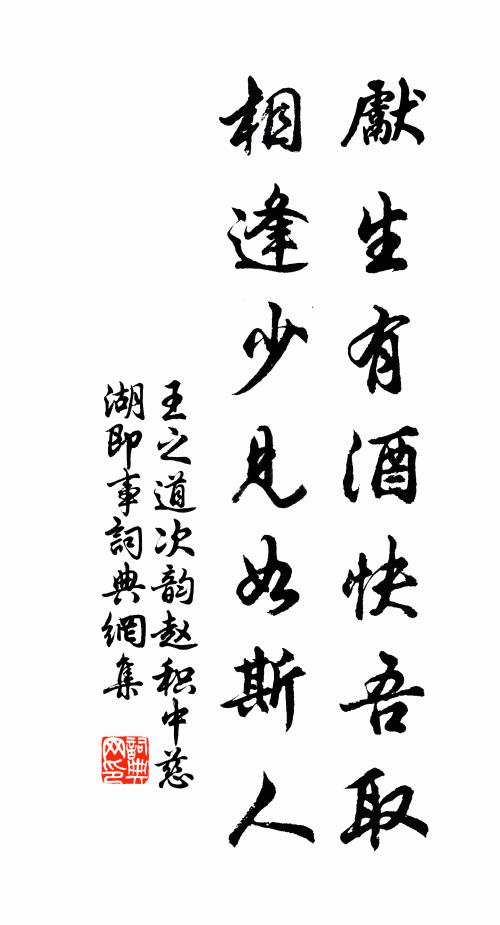 獻生有酒快吾取
相逢少見如斯人
王之道次韵赵积中慈
湖即事詞典網集
詞典
网印